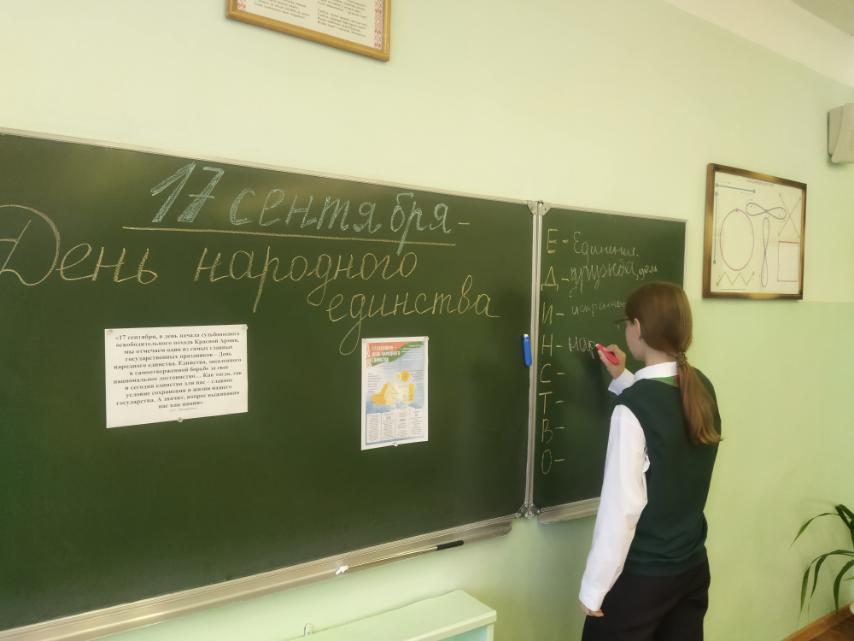 17 сентября-
День народного
единства
«17 сентября, в день начала судьбоносного
освободительного похода Красной Армии,
мы отмечаем один из самых главных
государственных праздников – День
народного единства. Единства, закаленного
в самоотверженной борьбе за свое
национальное достоинство... Как тогда, так
и сегодня единство для нас – главное
условие сохранения и жизни нашего
государства. А значит, вопрос выживания
нас как нации».
17 СЕНТЯБРЯ –
ДЕНЬ НАРОДНОГО
ЕДИНСТВА
Е - Единения.
Д - дружба, дом
И -
Н - нак
С -
Т -
В -
О -